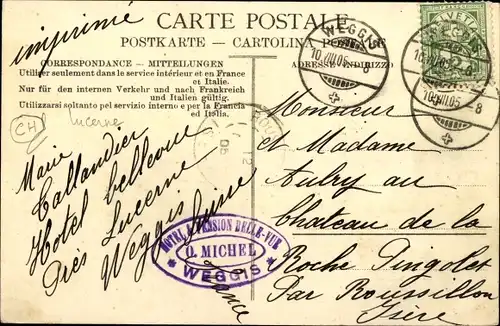 imprimé
CARTE POSTALE
POSTKARTE - CARTOLINA POSTALE
CORRESPONDANCE - MITTEILUNGEN
Utiliser seulement dans le service intérieur et en France et Italie.
Nur für den internen Verkehr und nach Frankreich und Italien gültig.
Utilizzarsi soltanto pel servizio interno e per la Francia ed Italia.
ADRESSE-INDIRIZZO
CH Lucerne
Marie
Callandier
Hotel bellevue
Près Lucerne
Weggis Suisse
HOTEL & PENSION BELLE-VUE
O. MICHEL
* WEGGIS *
WEGGIS
10.VIII.05. 8
WEGGIS
10.VIII.05. 8
10.VIII.05. 8
HELVETIA
Monsieur
et Madame
Autry au
Chateau de la
Roche Pingolet
Par Roussillon
Isère
France